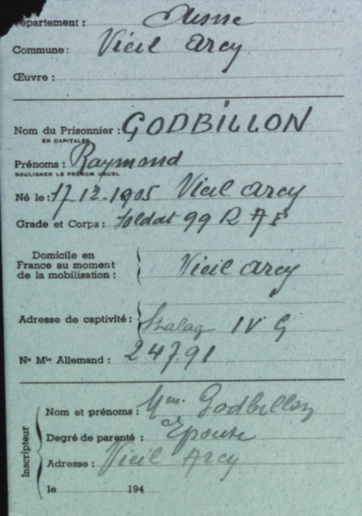 Département : Aisne
Commune : Vieil Arcy
Œuvre :
Nom du Prisonnier : GODBILLON
EN CAPITALES
Prénoms : Raymond
SOULIGNER LE PRÉNOM USUEL
Né le : 17.12.1905 Vieil Arcy
Grade et Corps : Soldat 99 R A F
Domicile en
France au moment
de la mobilisation : Vieil Arcy
Adresse de captivité : Stalag IV G
N° Mle Allemand : 24791
Inscripteur
Nom et prénoms : Mme Godbillon
Degré de parenté : Epouse
Adresse : Vieil Arcy
le 194